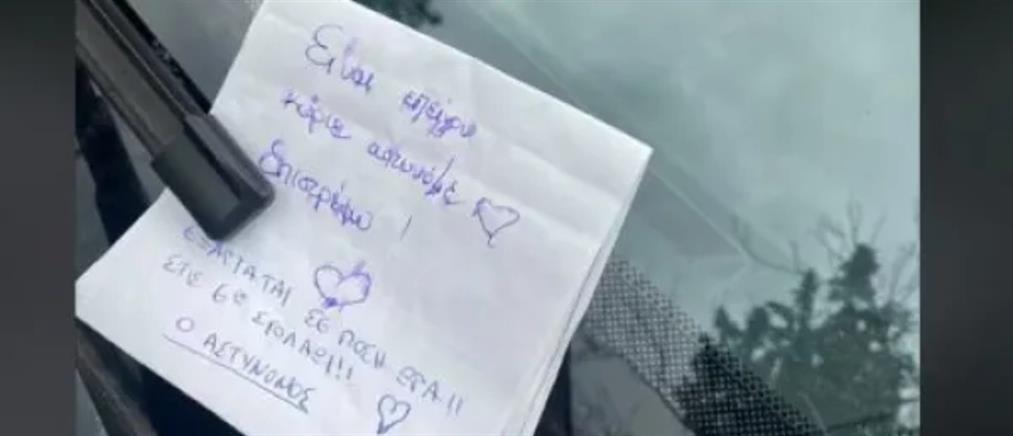 Είναι επείγον
κύριε αστυνόμε
Επιστρέφω!
ΕΞΑΡΤΑΤΑΙ ΣΕ ΠΟΣΗ ΩΡΑ!!
ΣΤΙΣ 6 ΣΧΟΛΑΩ!!
Ο ΑΣΤΥΝΟΜΟΣ